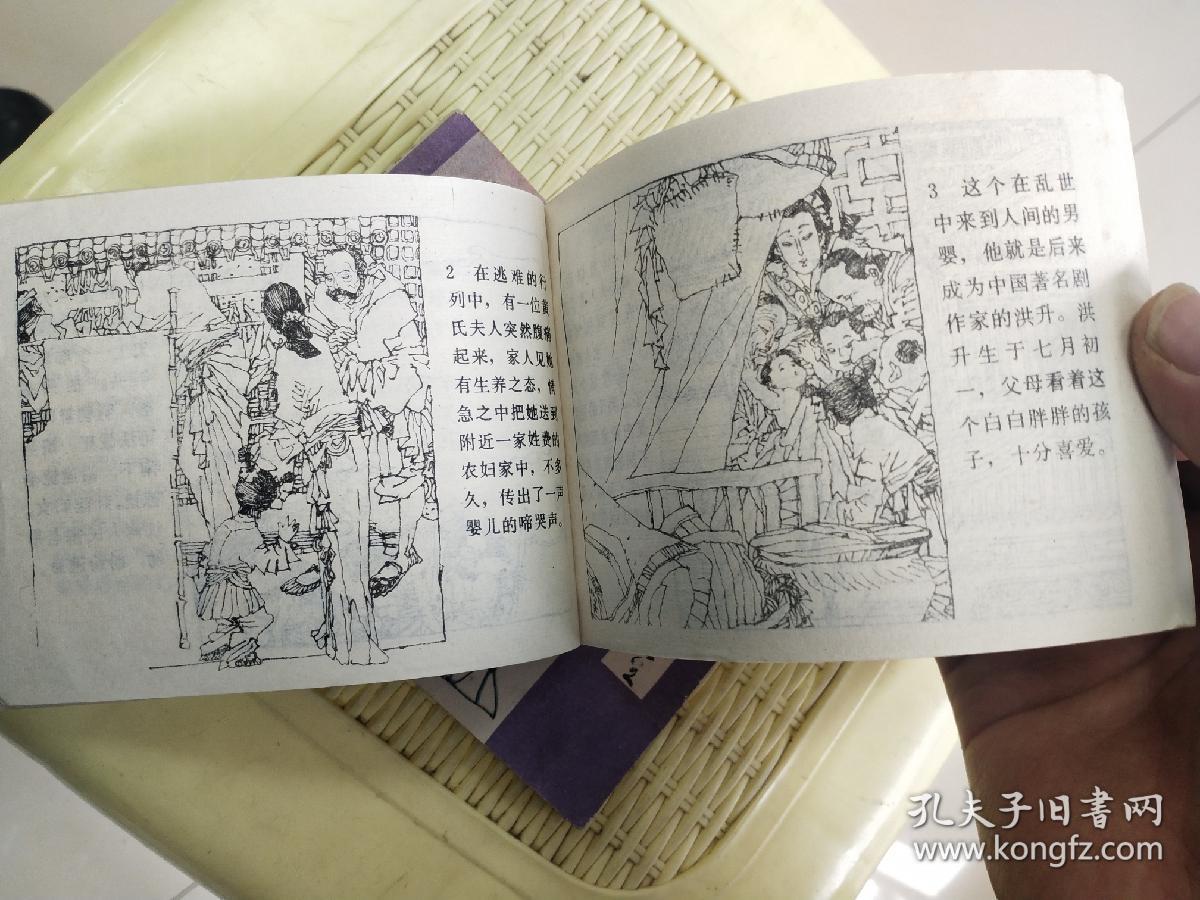 2 在逃难的行
列中，有一位黄
氏夫人突然腹痛
起来，家人见她
有生养之态，情
急之中把她送到
附近一家姓费的
农妇家中，不多
久，传出了一声
婴儿的啼哭声。
3 这个在乱世
中来到人间的男
婴，他就是后来
成为中国著名剧
作家的洪升。洪
升生于七月初
一，父母看着这
个白白胖胖的孩
子，十分喜爱。
孔夫子旧書网
www.kongfz.com